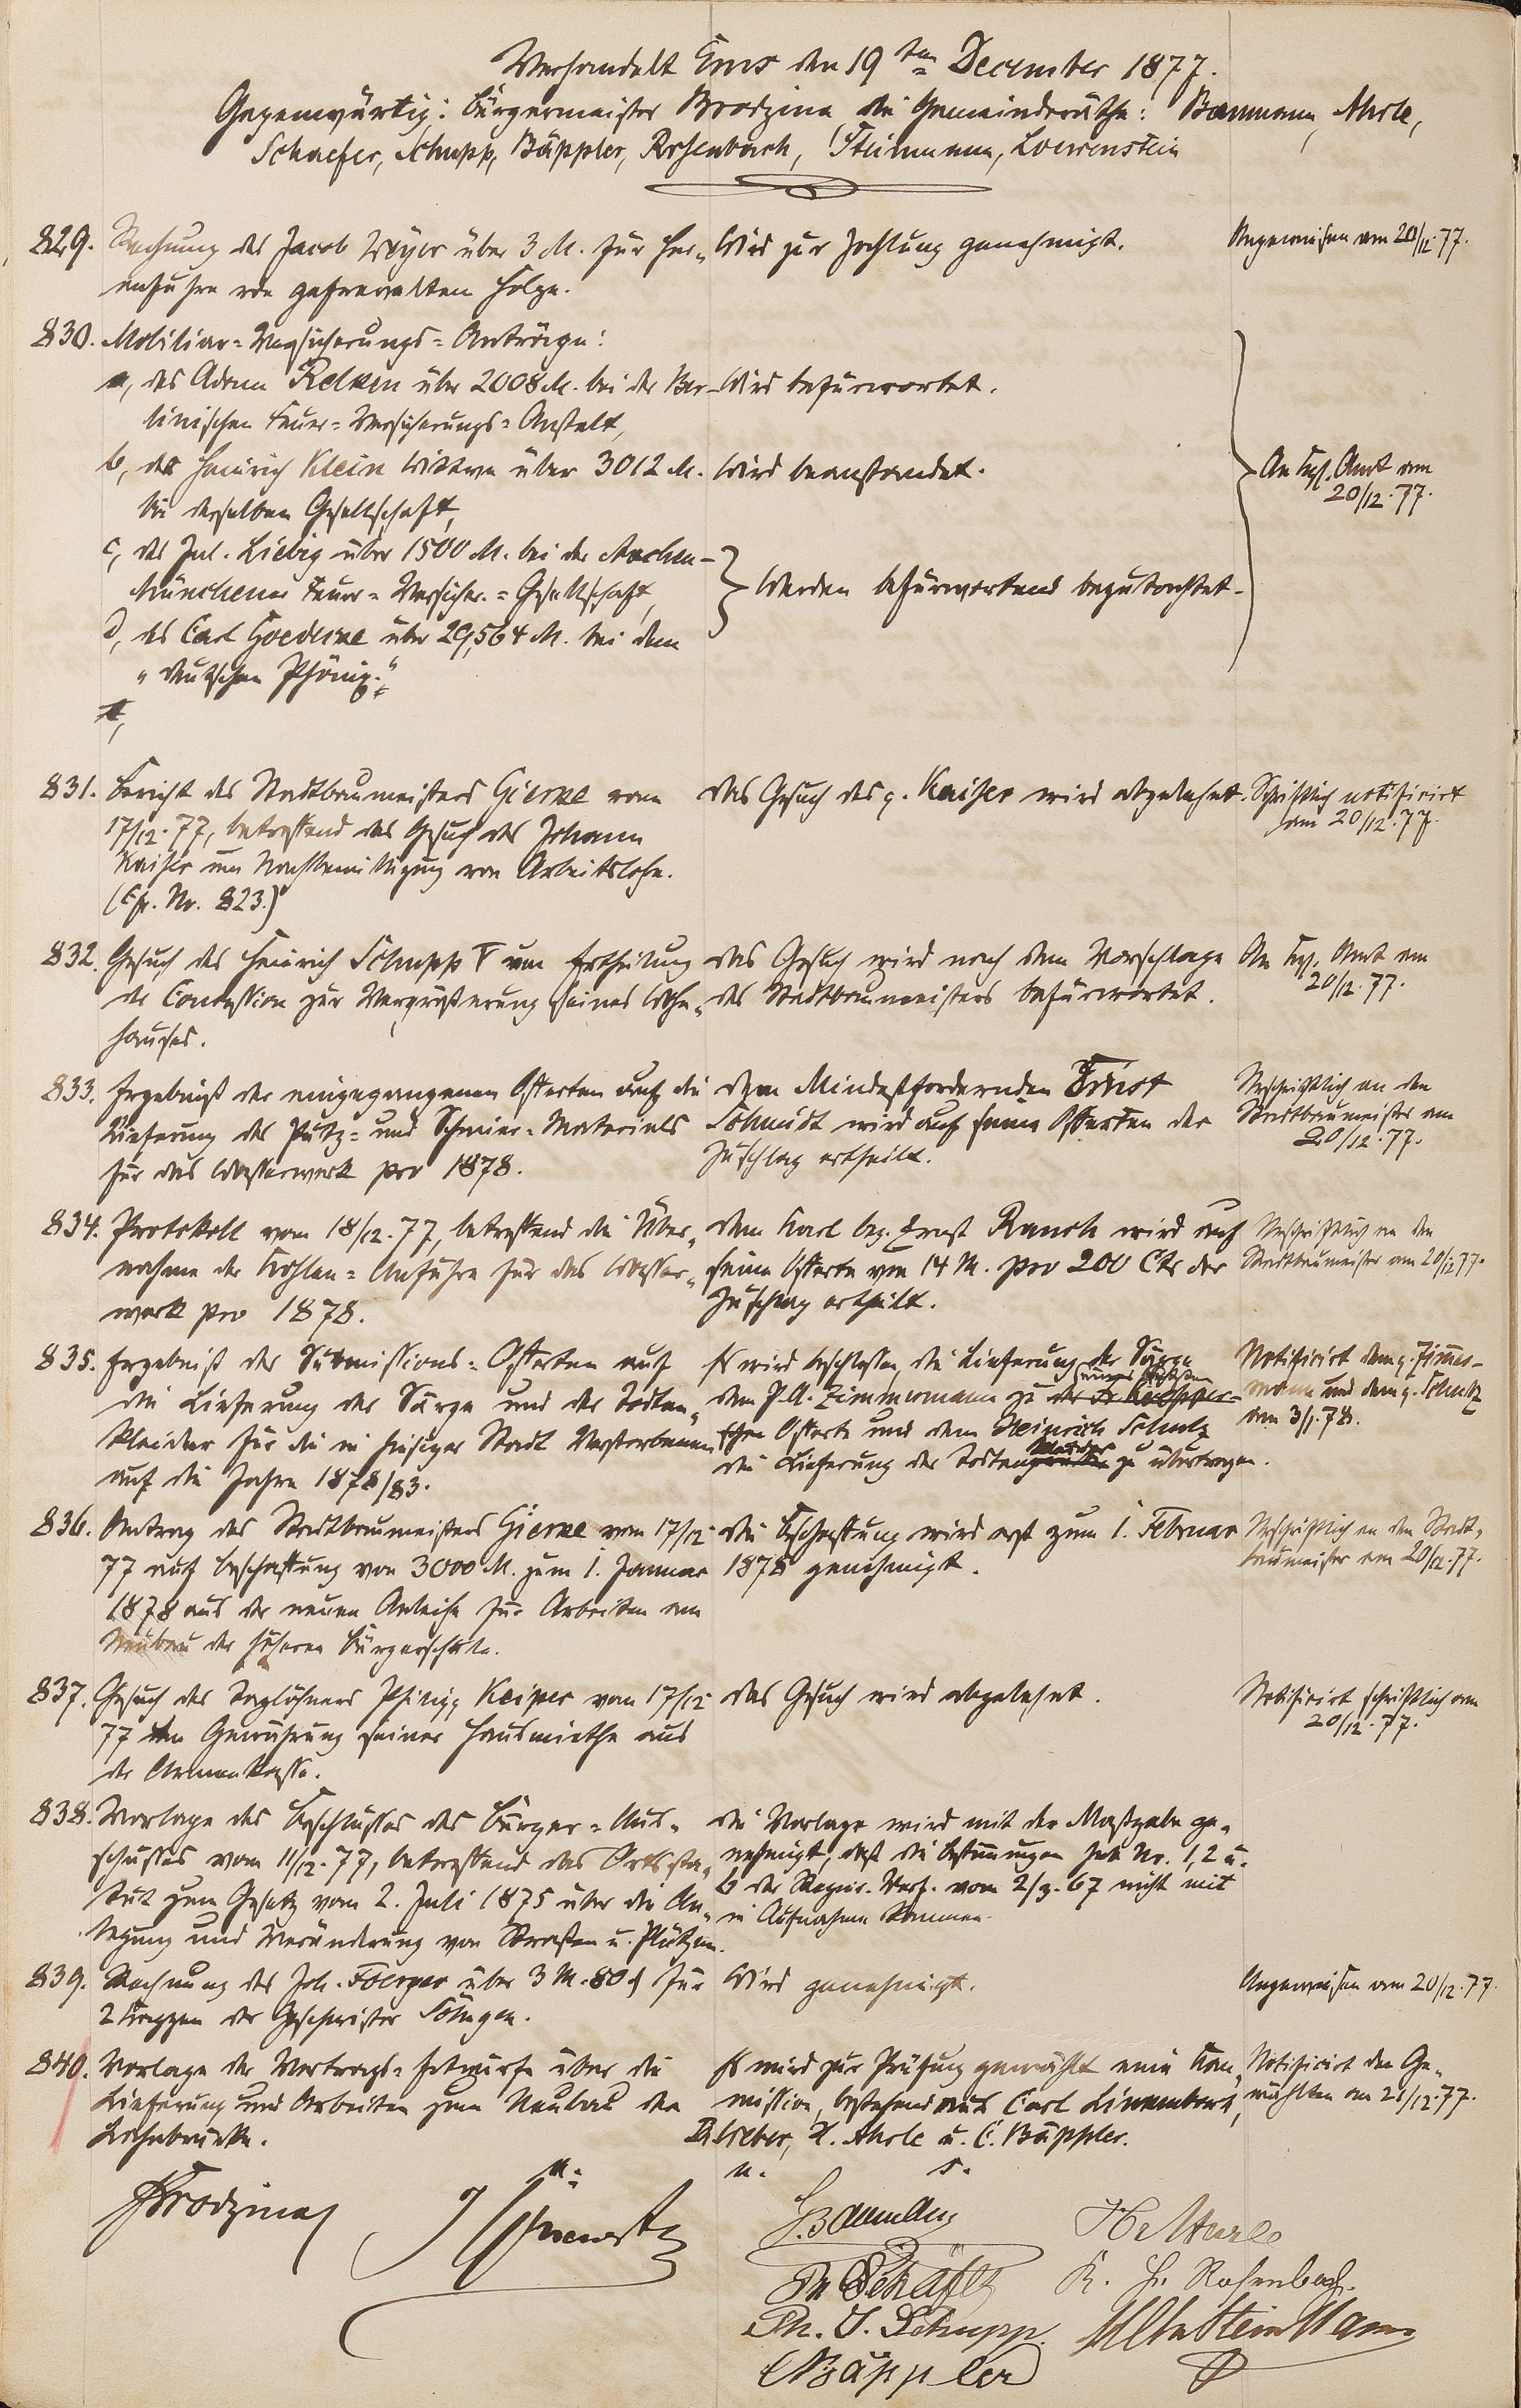 Verhandelt Ems den 19ten December 1877.
Gegenwärtig: Bürgermeister Brodzina die Gemeinderäthe: Baumann, Ahrle,
Schaefer, Schupp, Bäppler, Rosenbach, Steinmann, Loewenstein
829. Rechnung des Jacob Weyer über 3 M. für Her„
anfuhre von gefrevelten Holze.
Wird zur Zahlung genehmigt.
Angewiesen am 20/12.77.
830. Mobiliar=Versicherungs=Anträge:
a, des Adam Relken über 2008 M. bei der Ber-
linischen Feuer=Versicherungs=Anstalt,
Wird befürwortet.
b, der Heinrich Klein Wittwe über 3012 M.
bei derselben Gesellschaft,
Wird beanstandet.
c, des Jul. Liebig über 1500 M. bei der Aachen-
Münchener Feuer=Versicher.=Gesellschaft,
d, des Carl Goedecke über 29,564 M. bei dem
"deutschen Phönix."
Werden befürwortend begutachtet.
An Kgl. Amt am
20/12.77.
831. Bericht des Stadtbaumeisters Gierke vom
17/12.77, betreffend das Gesuch des Johann
Kaiser um Nachbewilligung von Arbeitslohn.
(Cfr. Nr. 823.)
Das Gesuch des g. Kaiser wird abgelehnt.
Schriftlich notificirt
am 20/12.77.
832. Gesuch des Heinrich Schupp V um Ertheilung
der Concession zur Vergrößerung seines Wohn„
hauses.
Das Gesuch wird nach dem Vorschlage
des Stadtbaumeisters befürwortet.
An Kgl. Amt am
20/12.77.
833. Ergebniß der eingegangenen Offerten auf die
Lieferung des Putz= und Schmier=Materials
für das Wasserwerk pro 1878.
Dem Mindestfordernden Ernst
Schmidt wird auf seine Offerten der
Zuschlag ertheilt.
Urschriftlich an den
Stadtbaumeister am
20/12.77.
834. Protokoll vom 18/12.77, betreffend die Über„
nahme der Kohlen=Anfuhre für das Wasser„
werk pro 1878.
Dem Karl bez. Ernst Rauch wird auf
seine Offerte von 14 M. pro 200 Ctr der
Zuschlag ertheilt.
Urschriftlich an den
Stadtbaumeister am 20/12.77.
835. Ergebniß der Submissions=Offerten auf
die Lieferung der Särge und der Todten„
kleider für die in hiesiger Stadt Verstorbenen
auf die Jahre 1878/83.
Es wird beschlossen, die Lieferung der Särge
dem P.A. Zimmermann zu
Offerte und dem Heinrich Schulz
die Lieferung der Todtenkleider zu übertragen.
Notificirt dem g. Zimmer-
mann und dem g. Schulz
am 3/1.78.
836. Antrag des Stadtbaumeisters Gierke vom 17/12
77 auf Beschaffung von 3000 M. zum 1. Januar
1878 aus der neuen Anleihe für Arbeiten am
Neubau der höheren Bürgerschule.
Die Beschaffung wird erst zum 1. Februar
1878 genehmigt.
Urschriftlich an den Stadt„
baumeister am 20/12.77.
837. Gesuch des Taglöhners Philipp Keiper vom 17/12
77 um Gewährung seiner Hausmiethe aus
der Armenkasse.
Das Gesuch wird abgelehnt.
Notificirt schriftlich am
20/12.77.
838. Vorlage des Beschlusses des Bürger=Aus„
schusses vom 11/12.77, betreffend das Ortssta„
tut zum Gesetz vom 2. Juli 1875 über die An„
legung und Veränderung von Straßen u. Plätzen.
Die Vorlage wird mit der Maßgabe ge„
nehmigt, daß die Bestimmungen sub Nr. 1, 2 u.
6 der Regier. Verf. vom 2/9.67 nicht mit
in Aufnahme kommen.
839. Rechnung des Joh. Foerger über 3 M. 80 ₰ für
2 Kappen der Geschwister Söhngen.
Wird genehmigt.
Angewiesen am 20/12.77.
840. Vorlage der Vertrags=Entwürfe über die
Lieferung und Arbeiten zum Neubau der
Lahnbrücke.
Es wird zur Prüfung gewählt eine Kom„
mission, bestehend aus Carl Linnenborn,
Weber, H. Ahrle u. C. Bäppler.
Notificirt den Ge„
wählten am 21/12.77.
a. u. s.
Brodzina
Baumann
H. Ahrle
Schäfer
K. H. Rosenbach.
Ph. J. Schupp.
Steinmann
C Bäppler